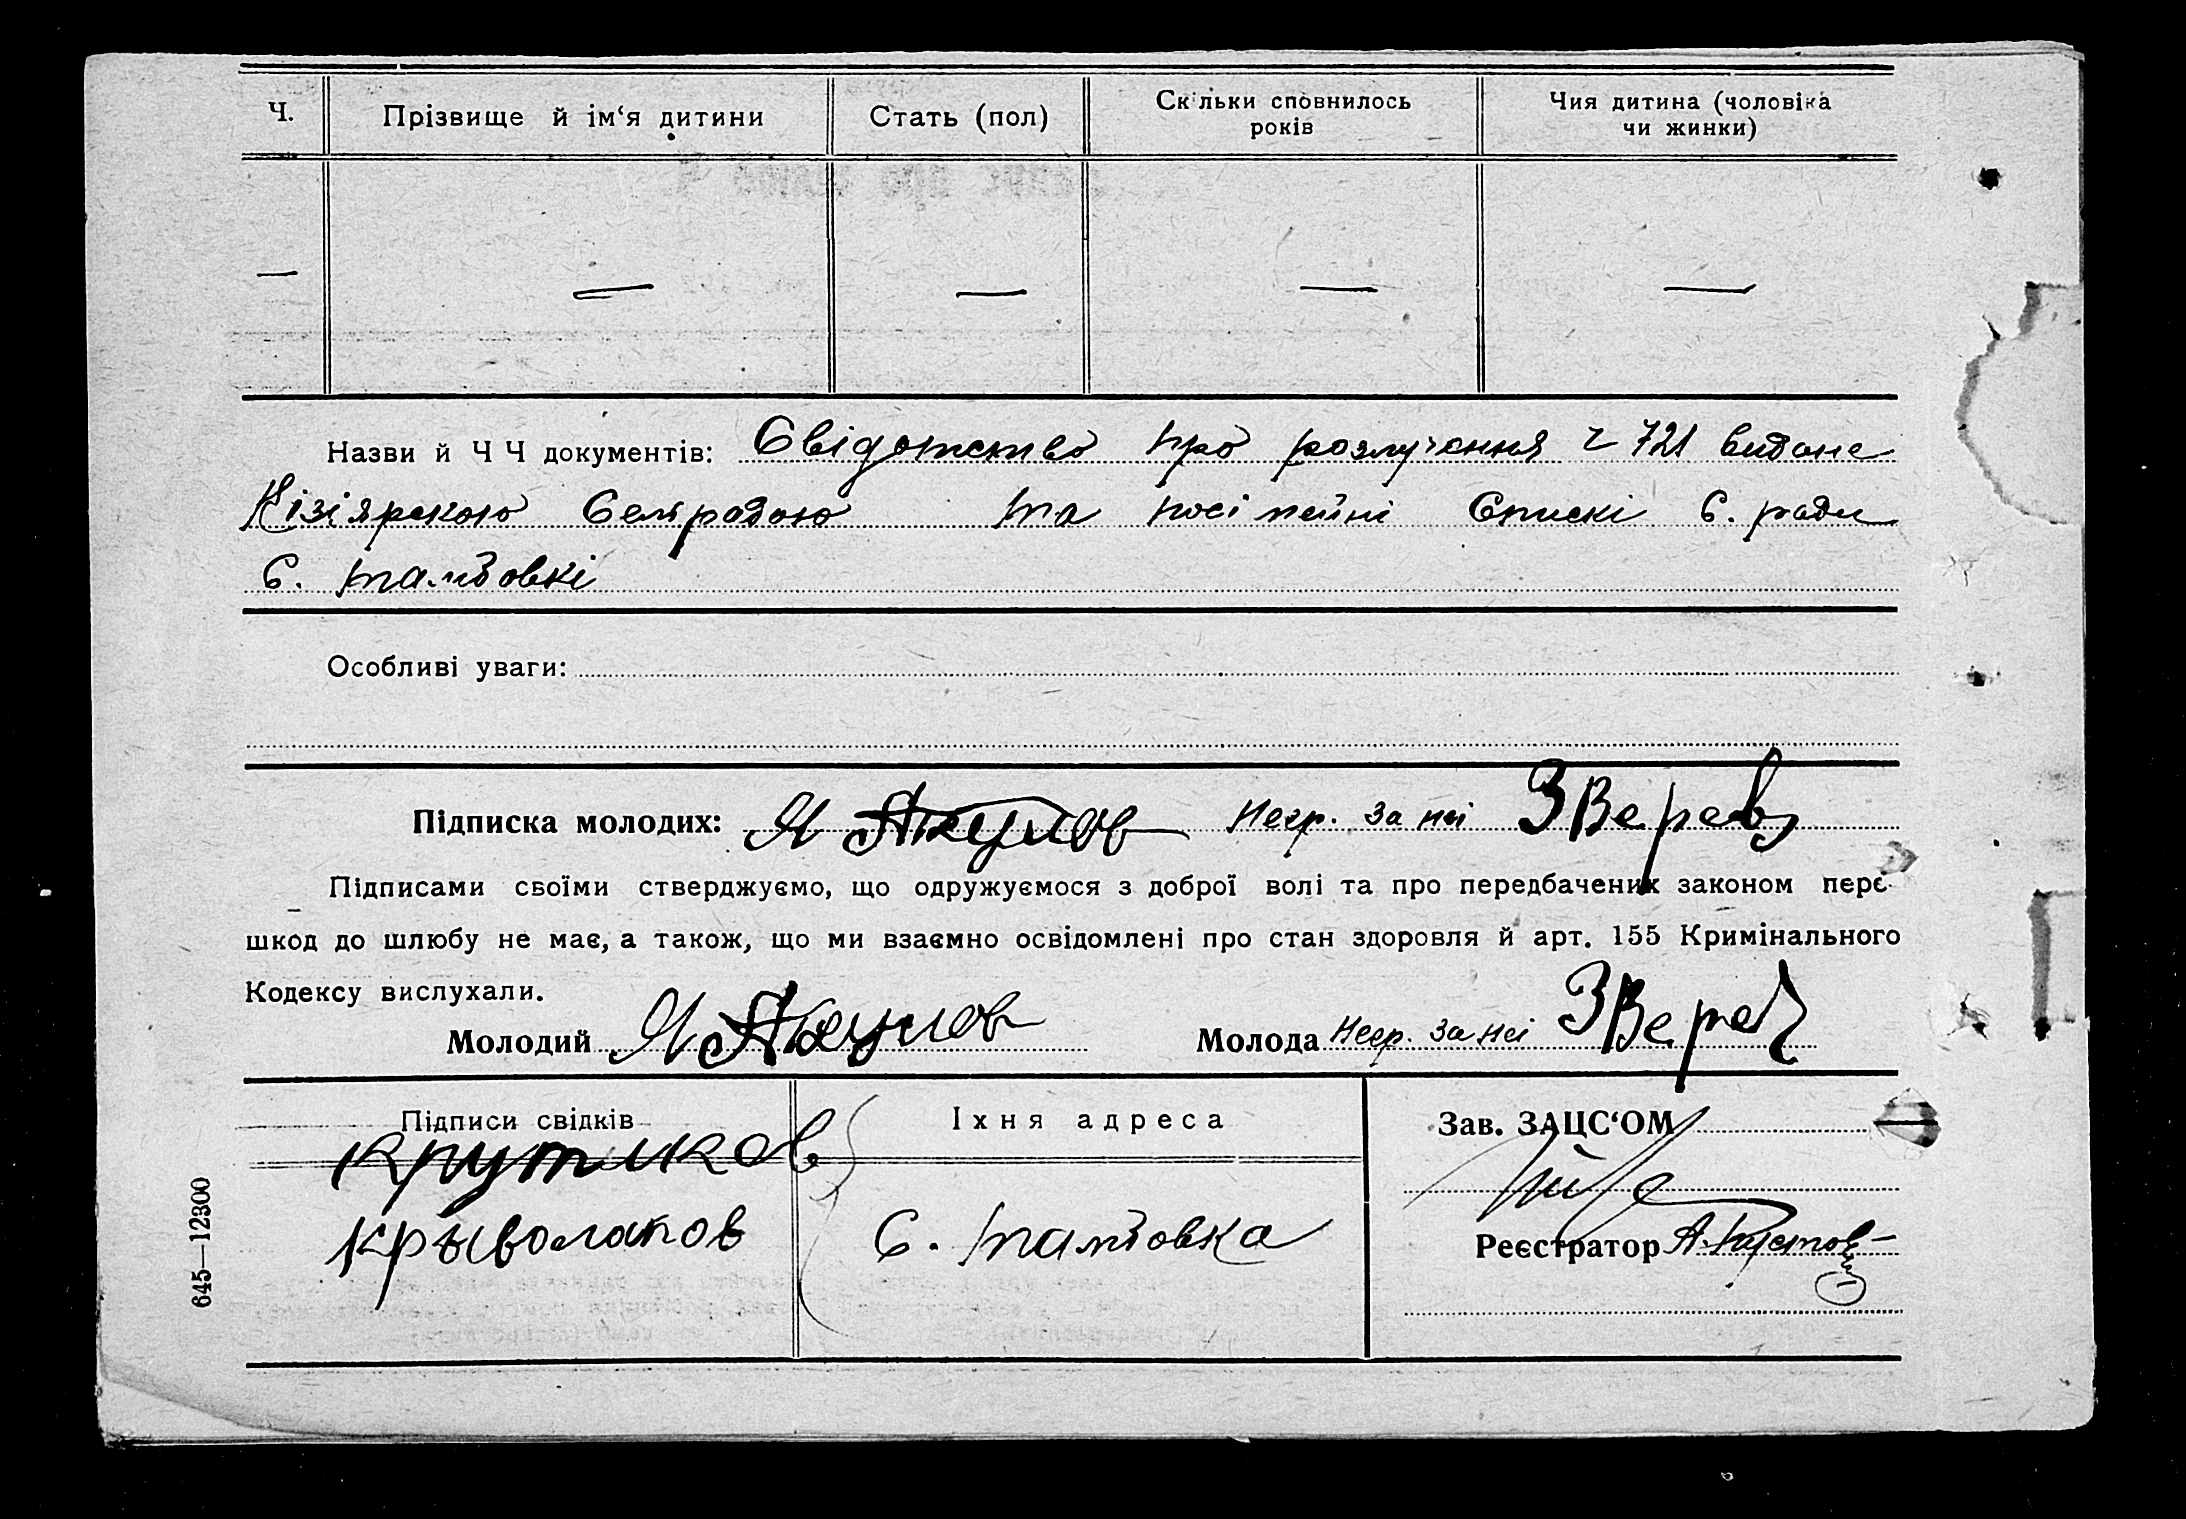 Ч.
Прізвище й ім‘я дитини
Стать (пол)
Скільки сповнилось
років
Чия дитина (чоловіка
чи жинки)
— — — — —
Назви й Ч Ч документів: Свідотство про розлучення ч 721 видане
Кізіярскою Селрадою та посімейні Спискі С. ради
С. Тамбовкі
Особливі уваги:
Підписка молодих: Я Акулов Негр. за неї Зверев
Підписами своїми стверджуємо, що одружуємося з доброї волі та про передбачених законом пере-
шкод до шлюбу не має, а також, що ми взаємно освідомлені про стан здоровля й арт. 155 Кримінального
Кодексу вислухали.
Молодий Я Акулов Молода Негр. за неї Зверев
Підписи свідків
Їхня адреса
Зав. ЗАЦС‘ОМ
Крутиков
Крыволапов
С. Тамбовка
Реєстратор А.
645—12300